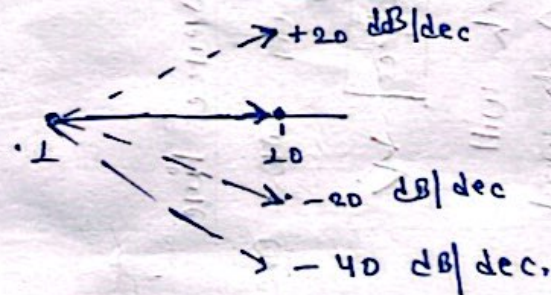 +20 dB/dec
.1
10
-20 dB/dec
-40 dB/dec.